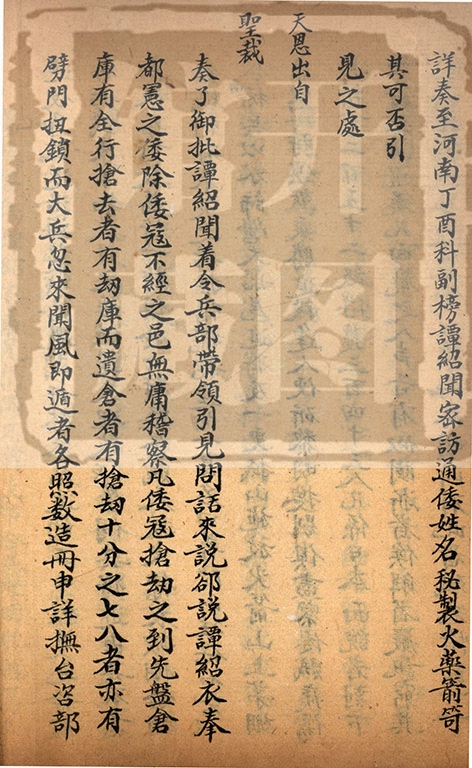 詳奏至河南丁酉科副榜譚紹聞密訪通倭姓名秘製火藥箭等
其可否引
見之處
天恩出自
聖裁
奏了御批譚紹聞着令兵部帶領引見問話來說卻說譚紹衣奉
都憲之倭除倭冦不經之邑無庸稽察凡倭冦搶劫之到先盤倉
庫有全行搶去者有劫庫而遺倉者有搶劫十分之七八者亦有
劈門扭鎖而大兵忽來聞風即遁者各照数造冊申詳撫台咨部